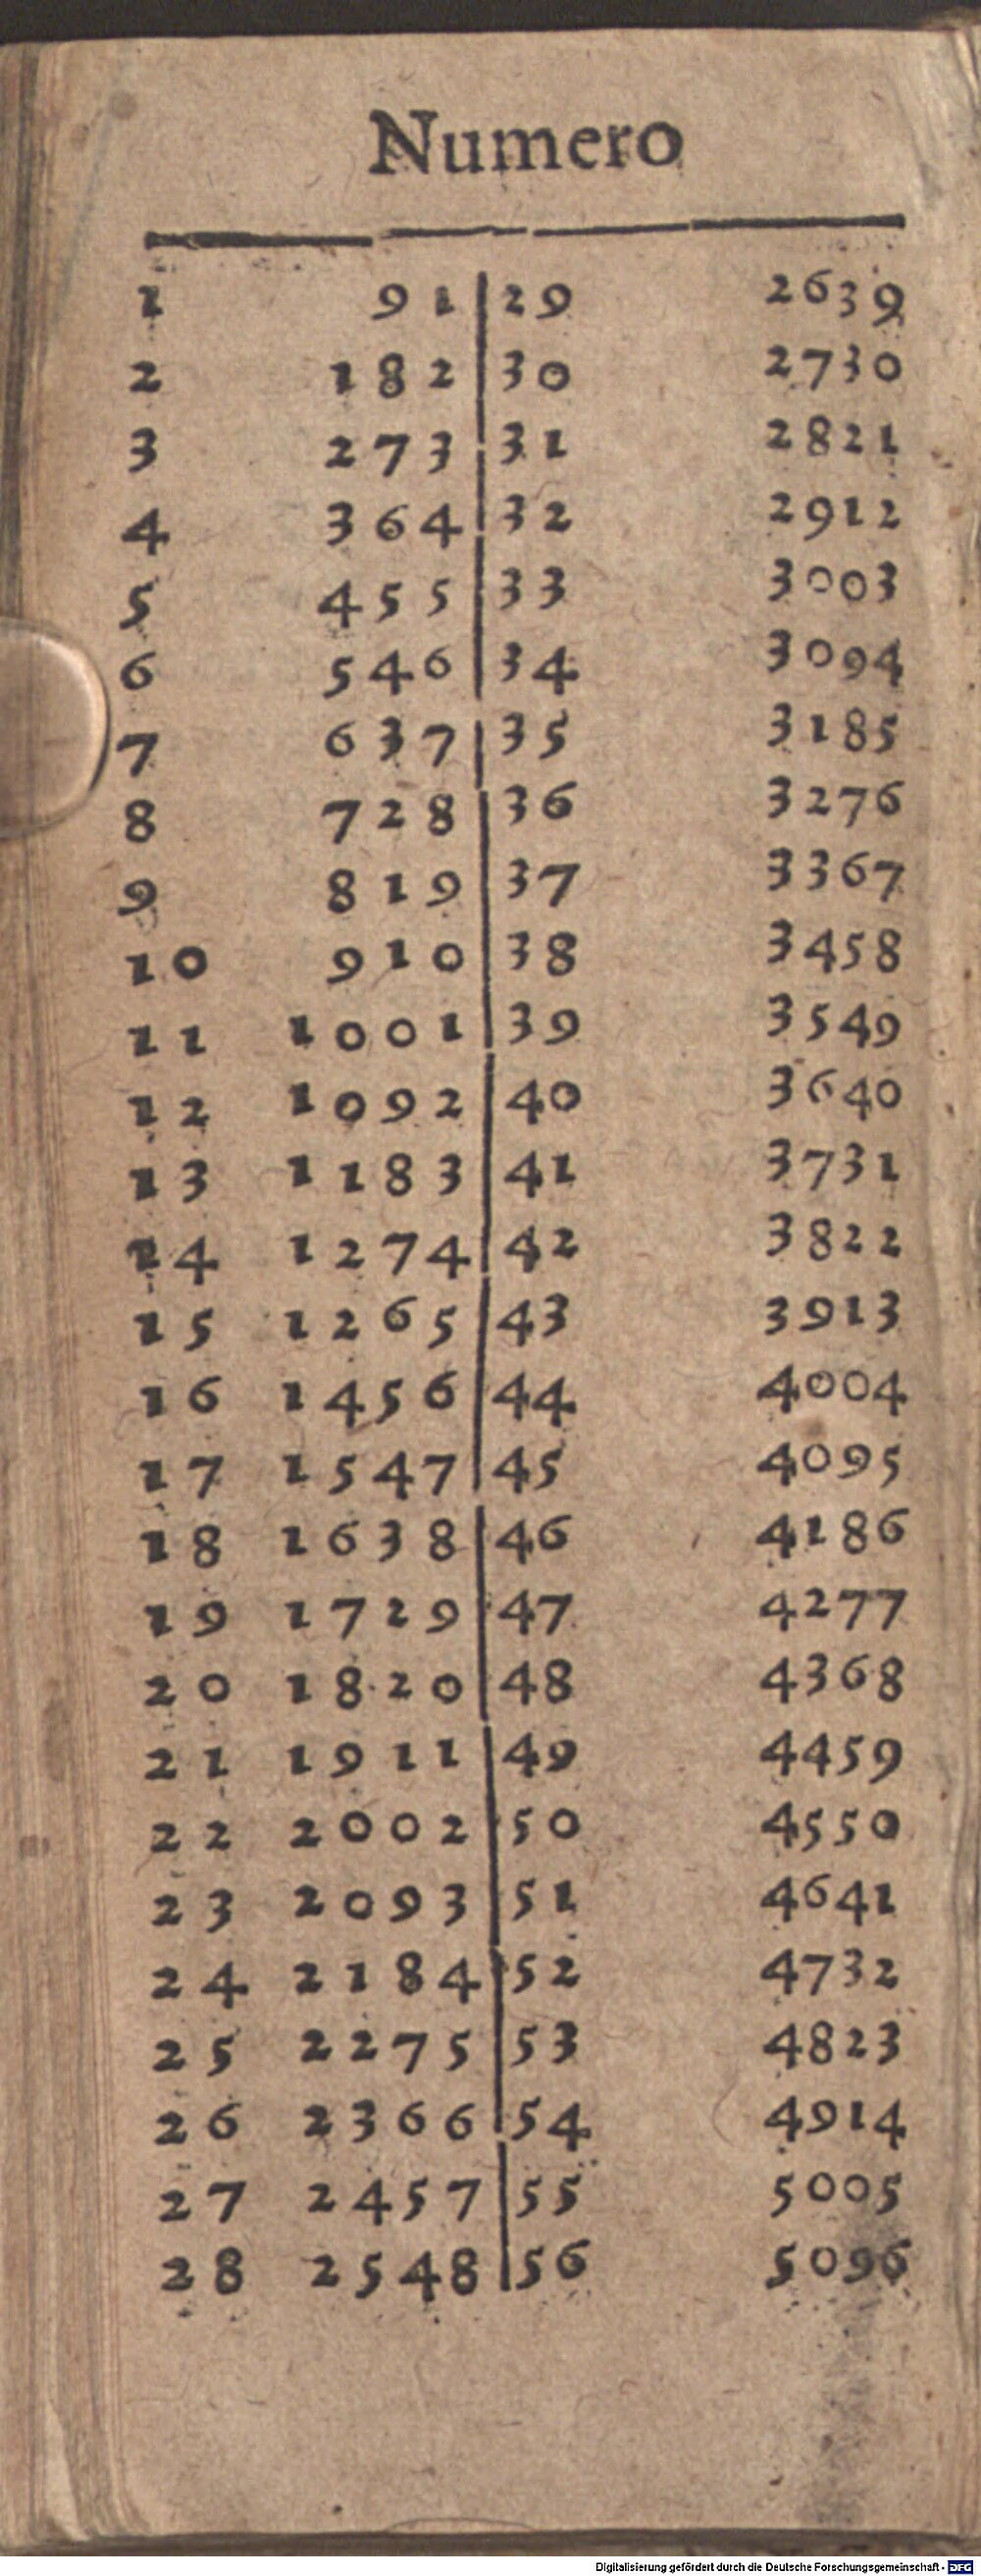 Numero
1 91 29 2639
2 182 30 2730
3 273 31 2821
4 364 32 2912
5 455 33 3003
6 546 34 3094
7 637 35 3185
8 728 36 3276
9 819 37 3367
10 910 38 3458
11 1001 39 3549
12 1092 40 3640
13 1183 41 3731
14 1274 42 3822
15 1265 43 3913
16 1456 44 4004
17 1547 45 4095
18 1638 46 4186
19 1729 47 4277
20 1820 48 4368
21 1911 49 4459
22 2002 50 4550
23 2093 51 4641
24 2184 52 4732
25 2275 53 4823
26 2366 54 4914
27 2457 55 5005
28 2548 56 5096
Digitalisierung gefördert durch die Deutsche Forschungsgemeinschaft - DFG